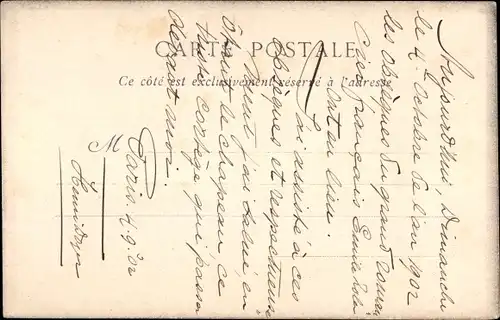 CARTE POSTALE
Ce côté est exclusivement réservé à l'adresse
M
Aujourd'hui, Dimanche
le 4 Octobre de l'an 1902
les obsèques du grand roman
cier français Emile Zola
ont eu lieu.
J'ai assisté à ces
obsèques et respectueuse
ment j'ai salué, en
ôtant le chapeau, ce
triste cortège qui passa
devant moi.
Paris
Henri